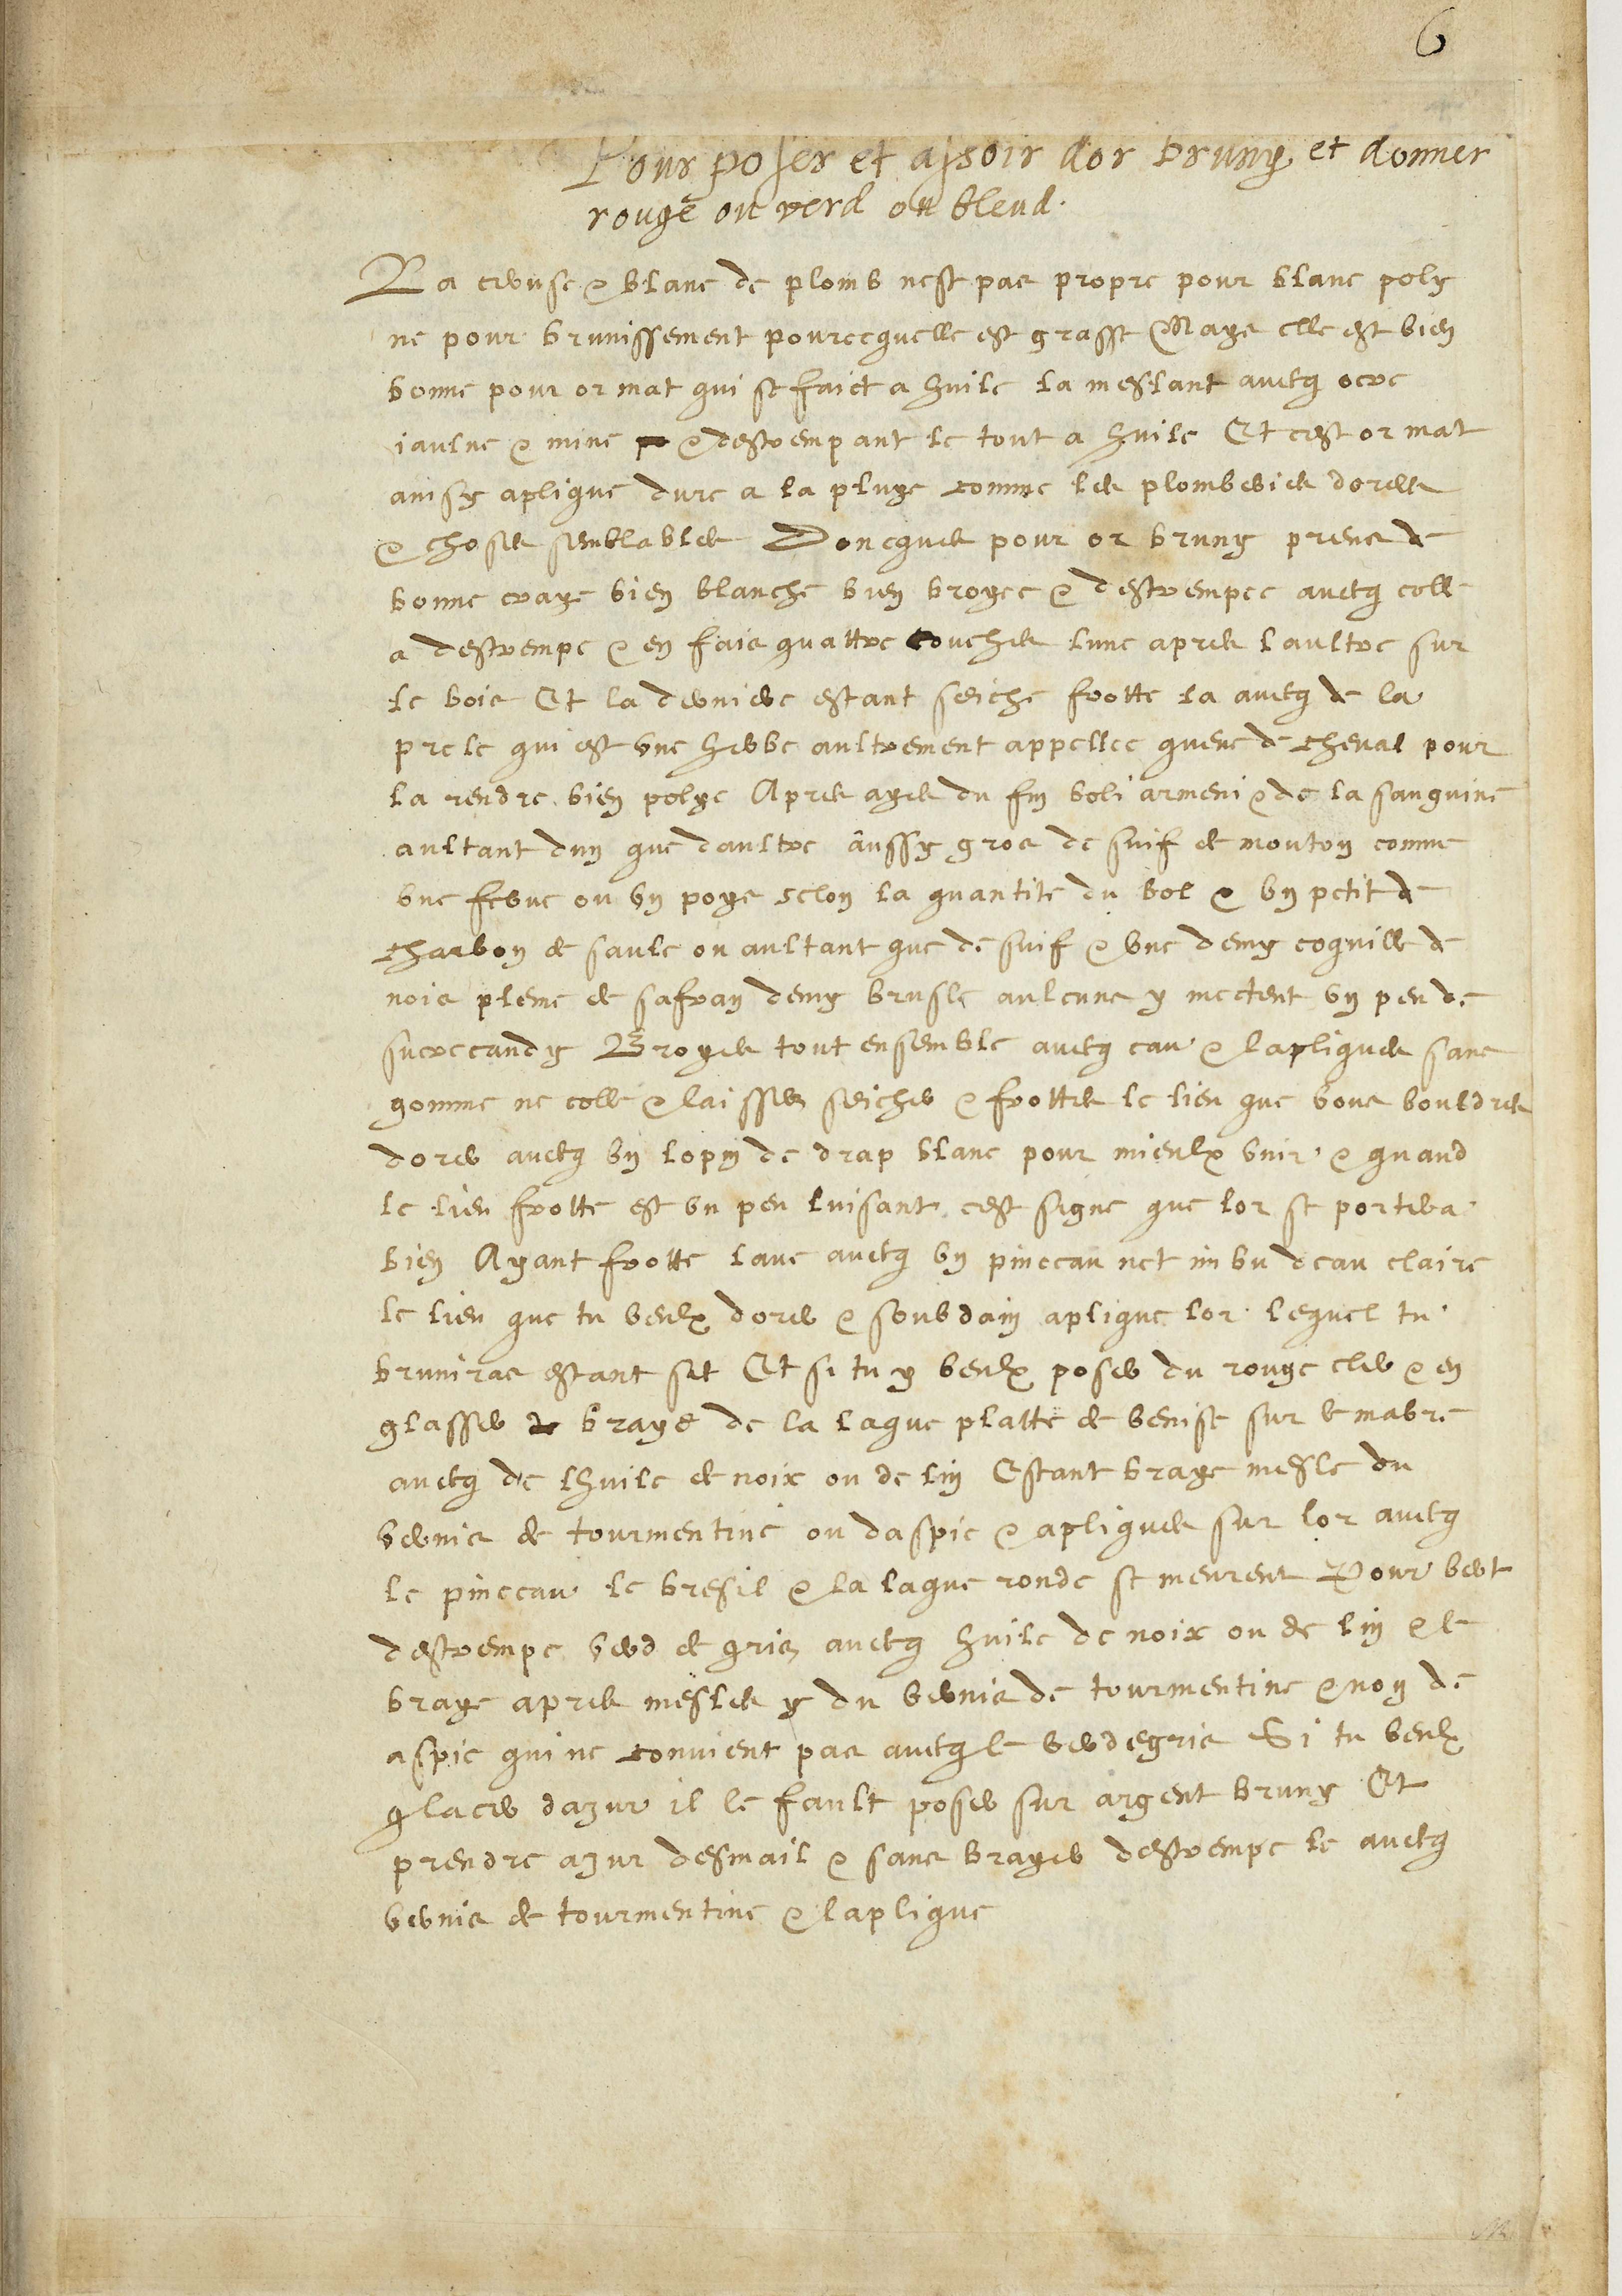 6
Pour poser et assoir dor bruny et donner
rouge ou verd ou bleud.
La ceruse & blanc de plomb nest pas propre pour blanc poly
ne pour brunissement pourcequelle est grasse Mays elle est bien
bonne pour or mat qui se faict a huile la meslant avecq ocre
iaulne & mine & destrempant le tout a huile Et cest or mat
ainsy aplique dure a la pluye comme les plomberies dorees
& choses semblables Doncques pour or bruny prens de
bonne craye bien blanche bien broyee & destrempee avecq colle
a destrempe & en fais quattre couches lune apres laultre sur
le bois Et la derniere estant seiche frotte la avecq de la
prele qui est une herbe aultrement appellee queue de cheval pour
la rendre bien polye Apres ayes du fin boli armeni & de la sanguine
aultant dun que daultre aussy gros de suif de mouton comme
une febve ou un poys selon la quantite du bol & un petit de
charbon de saule ou aultant que de suif & une demy coquille de
nois pleine de safran demy brusle aulcuns y mectent un peu de
sucrecandy Broyes tout ensemble avecq eau & lapliques sans
gomme ne colle & laisses seicher & frottes le lieu que vous vouldres
dorer avecq un lopin de drap blanc pour mieulx unir & quand
le lieu frotte est un peu luisant cest signe que lor se portera
bien Ayant frotte lave avecq un pinceau net imbu deau claire
le lieu que tu veulx dorer & soubdain aplique lor lequel tu
bruniras estant sec Et si tu y veulx poser du rouge cler & en
glasser braye de la laque platte de venise sur le mabre
avecq de lhuile de noix ou de lin Estant braye mesle du
vernis de tourmentine ou daspic & apliques sur lor avecq
le pinceau le bresil & la laque ronde se meurent Pour vert
destrempe verd de gris avecq huile de noix ou de lin & le
braye apres mesles y du vernis de tourmentine & non de
aspic qui ne convient pas avecq le verdegris Si tu veulx
glacer dazur il le fault poser sur argent bruny Et
prendre azur desmail & sans brayer destrempe le avecq
vernis de tourmentine & laplique